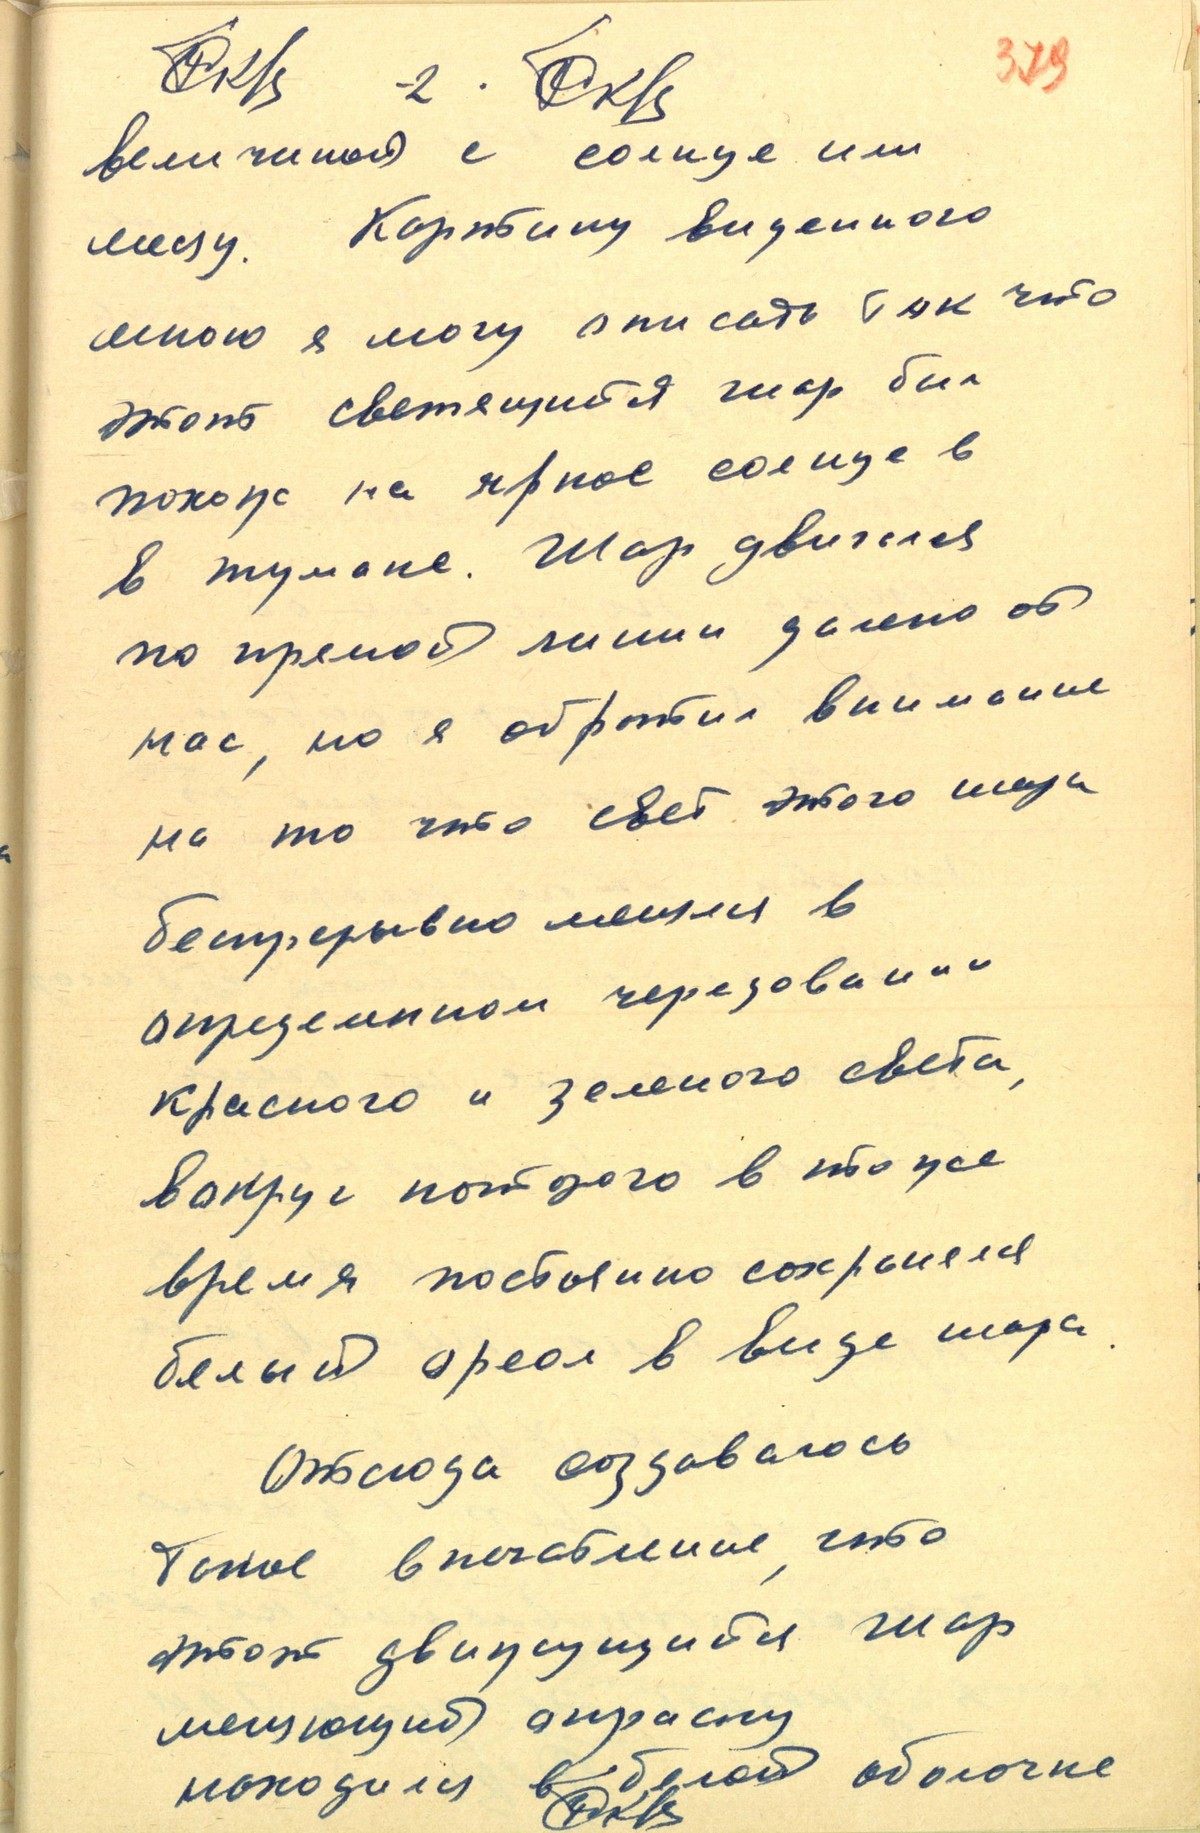 -2.
379
величиной с солнце или
луну. Картину виденного
мною я могу описать так что
этот светящийся шар был
похож на яркое солнце в
в тумане. Шар двигался
по прямой линии далеко от
нас, но я обратил внимание
на то что свет этого шара
беспрерывно менялся в
определенном чередовании
красного и зеленого света,
вокруг которого в тоже
время постоянно сохранялся
белый ореол в виде шара.
Отсюда создавалось
такое впечатление, что
этот движущийся шар
меняющий окраску
находился в белой оболочке